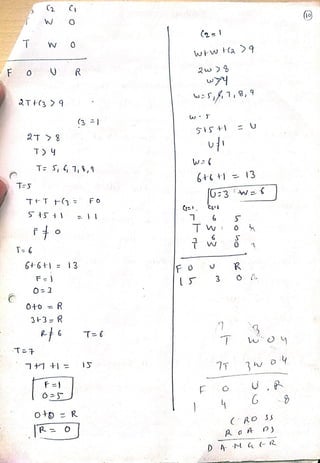 C2 C1
W O
T W O
F O U R
2T+C3 > 9
C3 = 1
2T > 8
T > 4
T = 5, 6, 7, 8, 9
T=5
T+T+C3 = FO
5+5+1 = 11
F ≠ O
T=6
6+6+1 = 13
F=1
O=3
O+O = R
3+3 = R
R ≠ 6 T=6
T=7
7+7+1 = 15
F=1
O=5
O+O = R
R = 0
10
C2=1
W+W+C2 > 9
2W > 8
W > 4
W = 5, 6, 7, 8, 9
W=5
5+5+1 = U
U ≠ 1
W=6
6+6+1 = 13
U=3 W=6
7 6 5
T W O
7 6 5
T W O
F O U R
1 5 3 0
7 3
T W O 4
7T 3W O 4
F O U R
1 4 6 8
C R O SS
R O A D S
D A N G E R